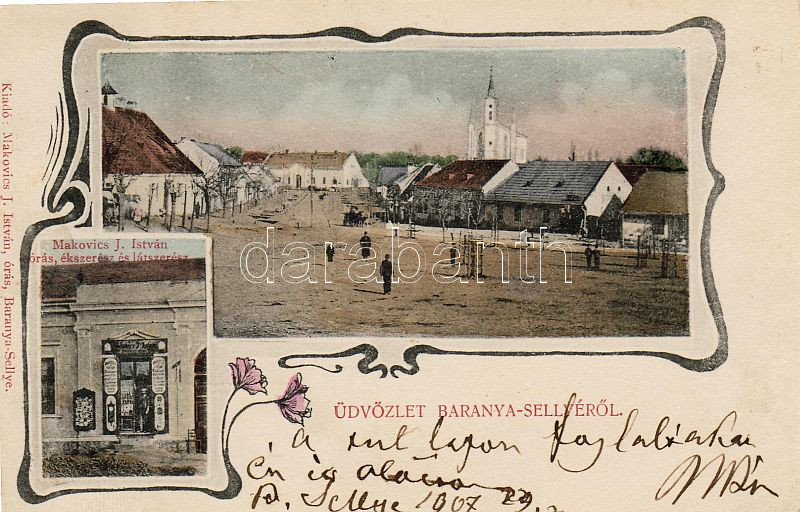 Kiadó: Makovics J. István, órás, Baranya-Sellye.
Makovics J. István
órás, ékszerész és látszerész
darabanth
ÜDVÖZLET BARANYA-SELLYÉRŐL.
a lapon
Én is
B. Sellye 1907